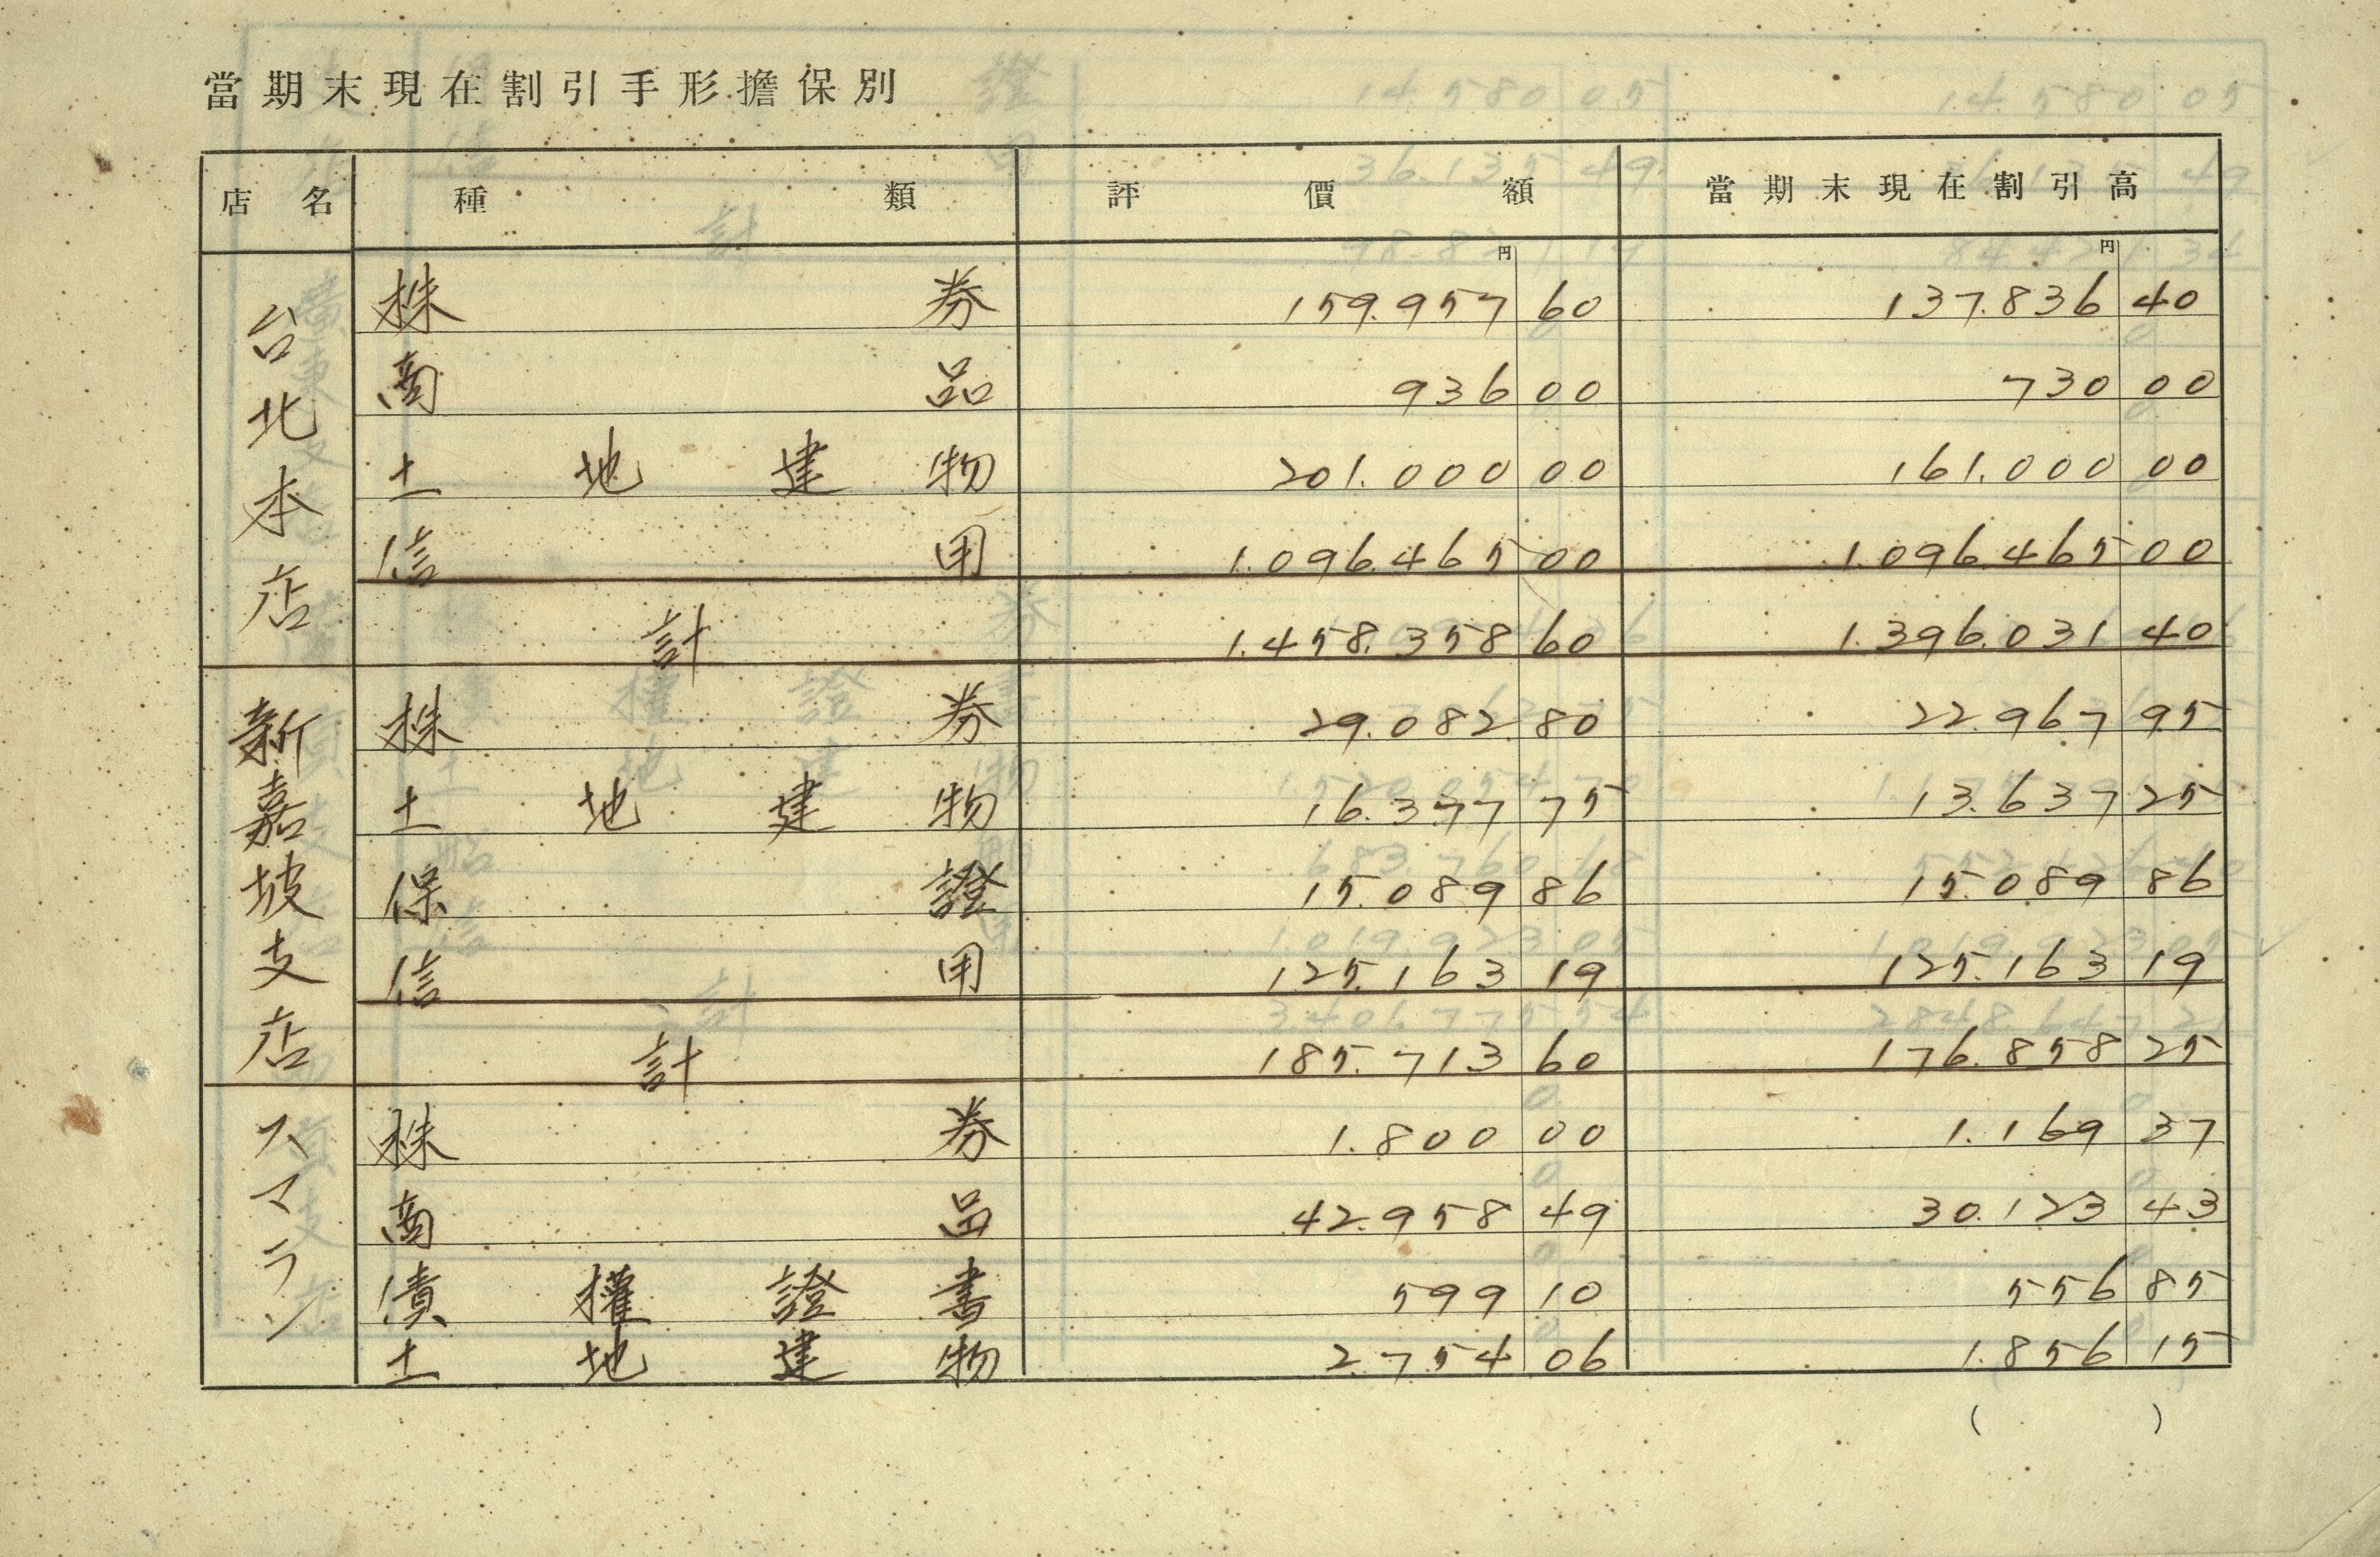 當期末現在割引手形擔保別
店名 種類 評價額 當期末現在割引高
円 円
台北本店
株券 159.957 60 137.836 40
商品 936 00 730 00
土地建物 201.000 00 161.000 00
信用 1.096.465 00 1.096.465 00
計 1.458.358 60 1.396.031 40
新嘉坡支店
株券 29.082 80 22.967 95
土地建物 16.377 75 13.637 25
保證 15.089 86 15.089 86
信用 125.163 19 125.163 19
計 185.713 60 176.858 25
スマラン
株券 1.800 00 1.169 37
商品 42.958 49 30.123 43
債權證書 599 10 556 85
土地建物 2.754 06 1.856 15
( )